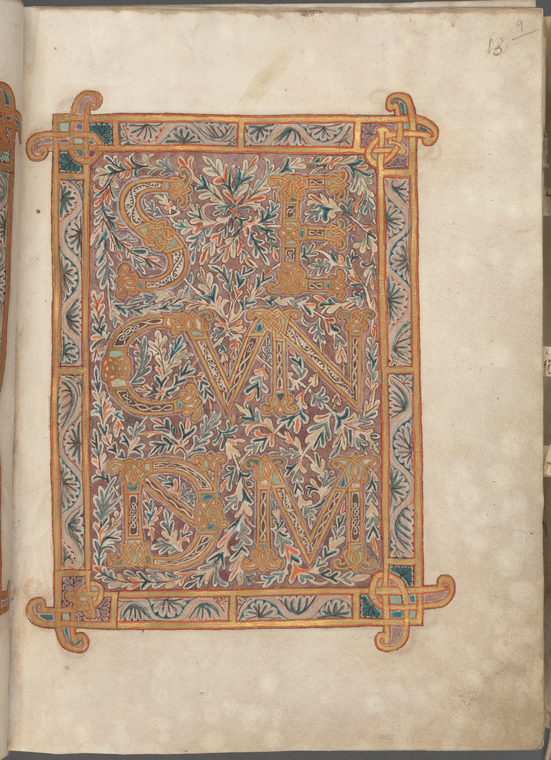 9
13
SE
CVN
DM